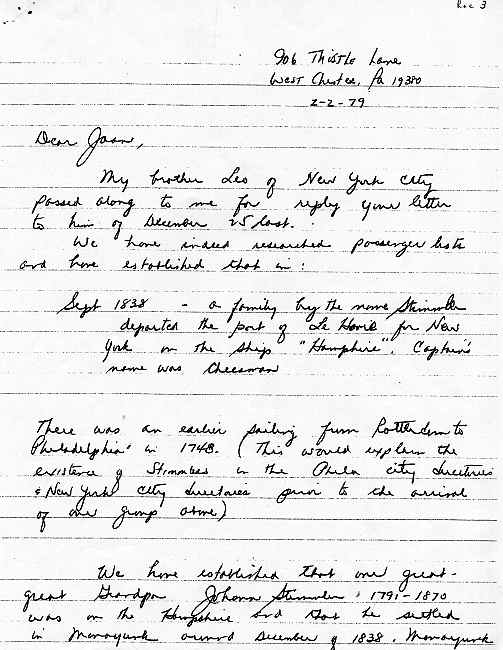 Rec 3
906 Thistle Lane
West Chester, Pa 19380
2-2-79
Dear Joan,
My brother Leo of New York City
passed along to me for reply your letter
to him of December 25 last.
We have indeed researched passenger lists
and have established that in:
Sept 1838 - a family by the name Stimmler
departed the port of Le Havre for New
York on the ship "Hampshire". Captain's
name was Cheesman
There was an earlier sailing from Rotterdam to
Philadelphia in 1748. (This would explain the
existence of Stimmlers in the Phila city directories
& New York city directories prior to the arrival
of our group above)
We have established that our great-
great Grandpa Johann Stimmler 1791-1870
was on the Hampshire and that he settled
in Manayunk around December of 1838. Manayunk